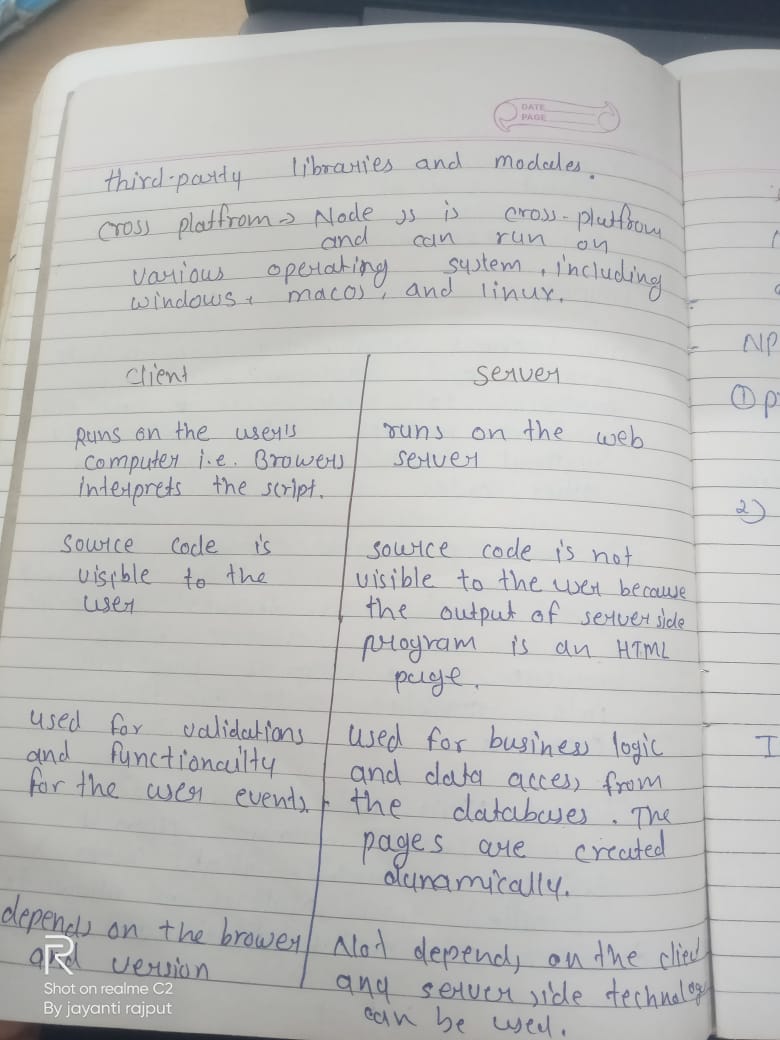 DATE
PAGE
third-party libraries and modules.
cross platfrom → Node js is cross-platfrom
and can run on
various operating system, including
windows, macos, and linux.
Client
Server
Runs on the user's
computer i.e. Browers
interprets the script.
runs on the web
server
Source code is
visible to the
user
source code is not
visible to the user because
the output of server side
program is an HTML
page.
used for validations
and functionality
for the user events.
used for business logic
and data access from
the databases. The
pages are created
dynamically.
depends on the brower
and version
Not depends on the client
any server side technology
can be used.
NP
① p
2)
I
R
Shot on realme C2
By jayanti rajput